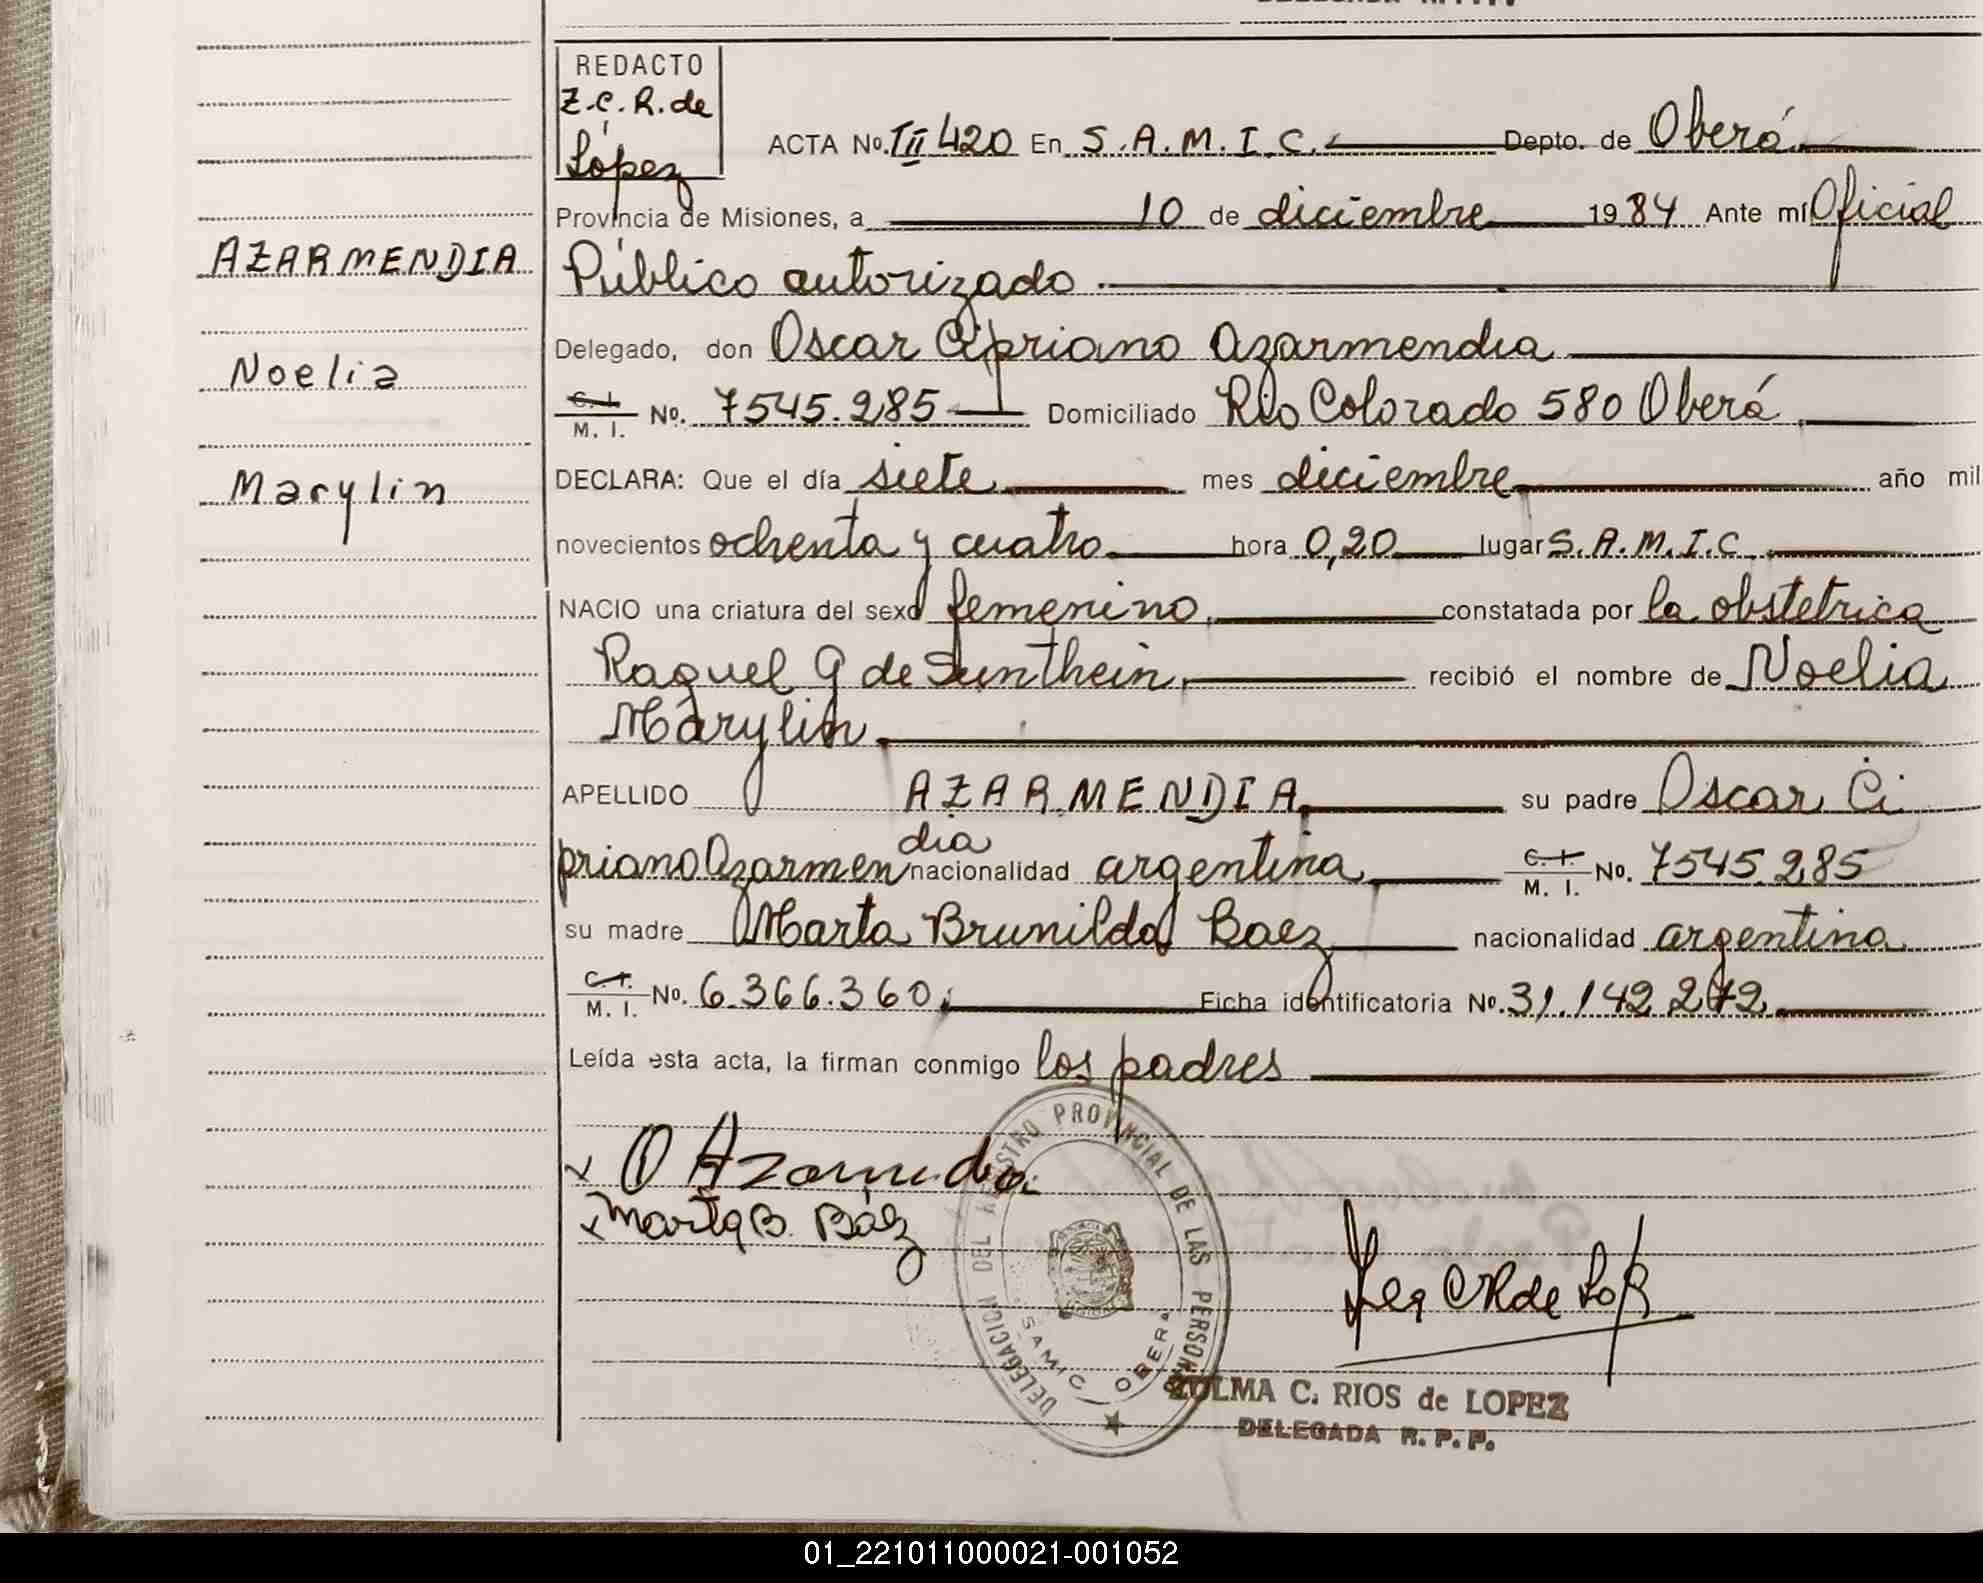 REDACTO
Z.C.R. de
López
ACTA No. III 420 En S.A.M.I.C. Depto. de Oberá
Provincia de Misiones, a 10 de diciembre 1984 Ante mí Oficial
AZARMENDIA
Público autorizado.
Delegado, don Oscar Cipriano Azarmendia
Noelia
C. I. M. I. No. 7545.285 Domiciliado Río Colorado 580 Oberá
DECLARA: Que el día siete mes diciembre año mil
Marylin
novecientos ochenta y cuatro hora 0,20 lugar S.A.M.I.C.
NACIO una criatura del sexo femenino, constatada por la obstetrica
Raquel G de Sunthein, recibió el nombre de Noelia
Marylin
APELLIDO AZARMENDIA, su padre Oscar Ci
priano Azarmendia nacionalidad argentina C. I. M. I. No. 7545.285
su madre Marta Brunilda Baez nacionalidad argentina
C. I. M. I. No. 6.366.360. Ficha identificatoria No. 31.142.272
Leída esta acta, la firman conmigo los padres
x O Azarmendia
x Marta B. Báez
DELEGACION DEL REGISTRO PROVINCIAL DE LAS PERSONAS
SAMIC OBERA
ZULMA C. RIOS de LOPEZ
DELEGADA R. P. P.
01_221011000021-001052